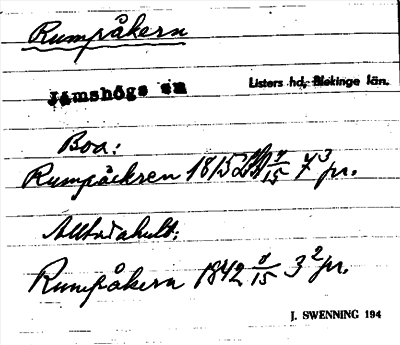 Rumpåkern
Jämshögs sn Listers hd, Blekinge län.
Boa:
Rumpåckren 1815 7/15 7 3 pr.
Rumpåkern 1842 7/15 3 2 pr.
J. SWENNING 194